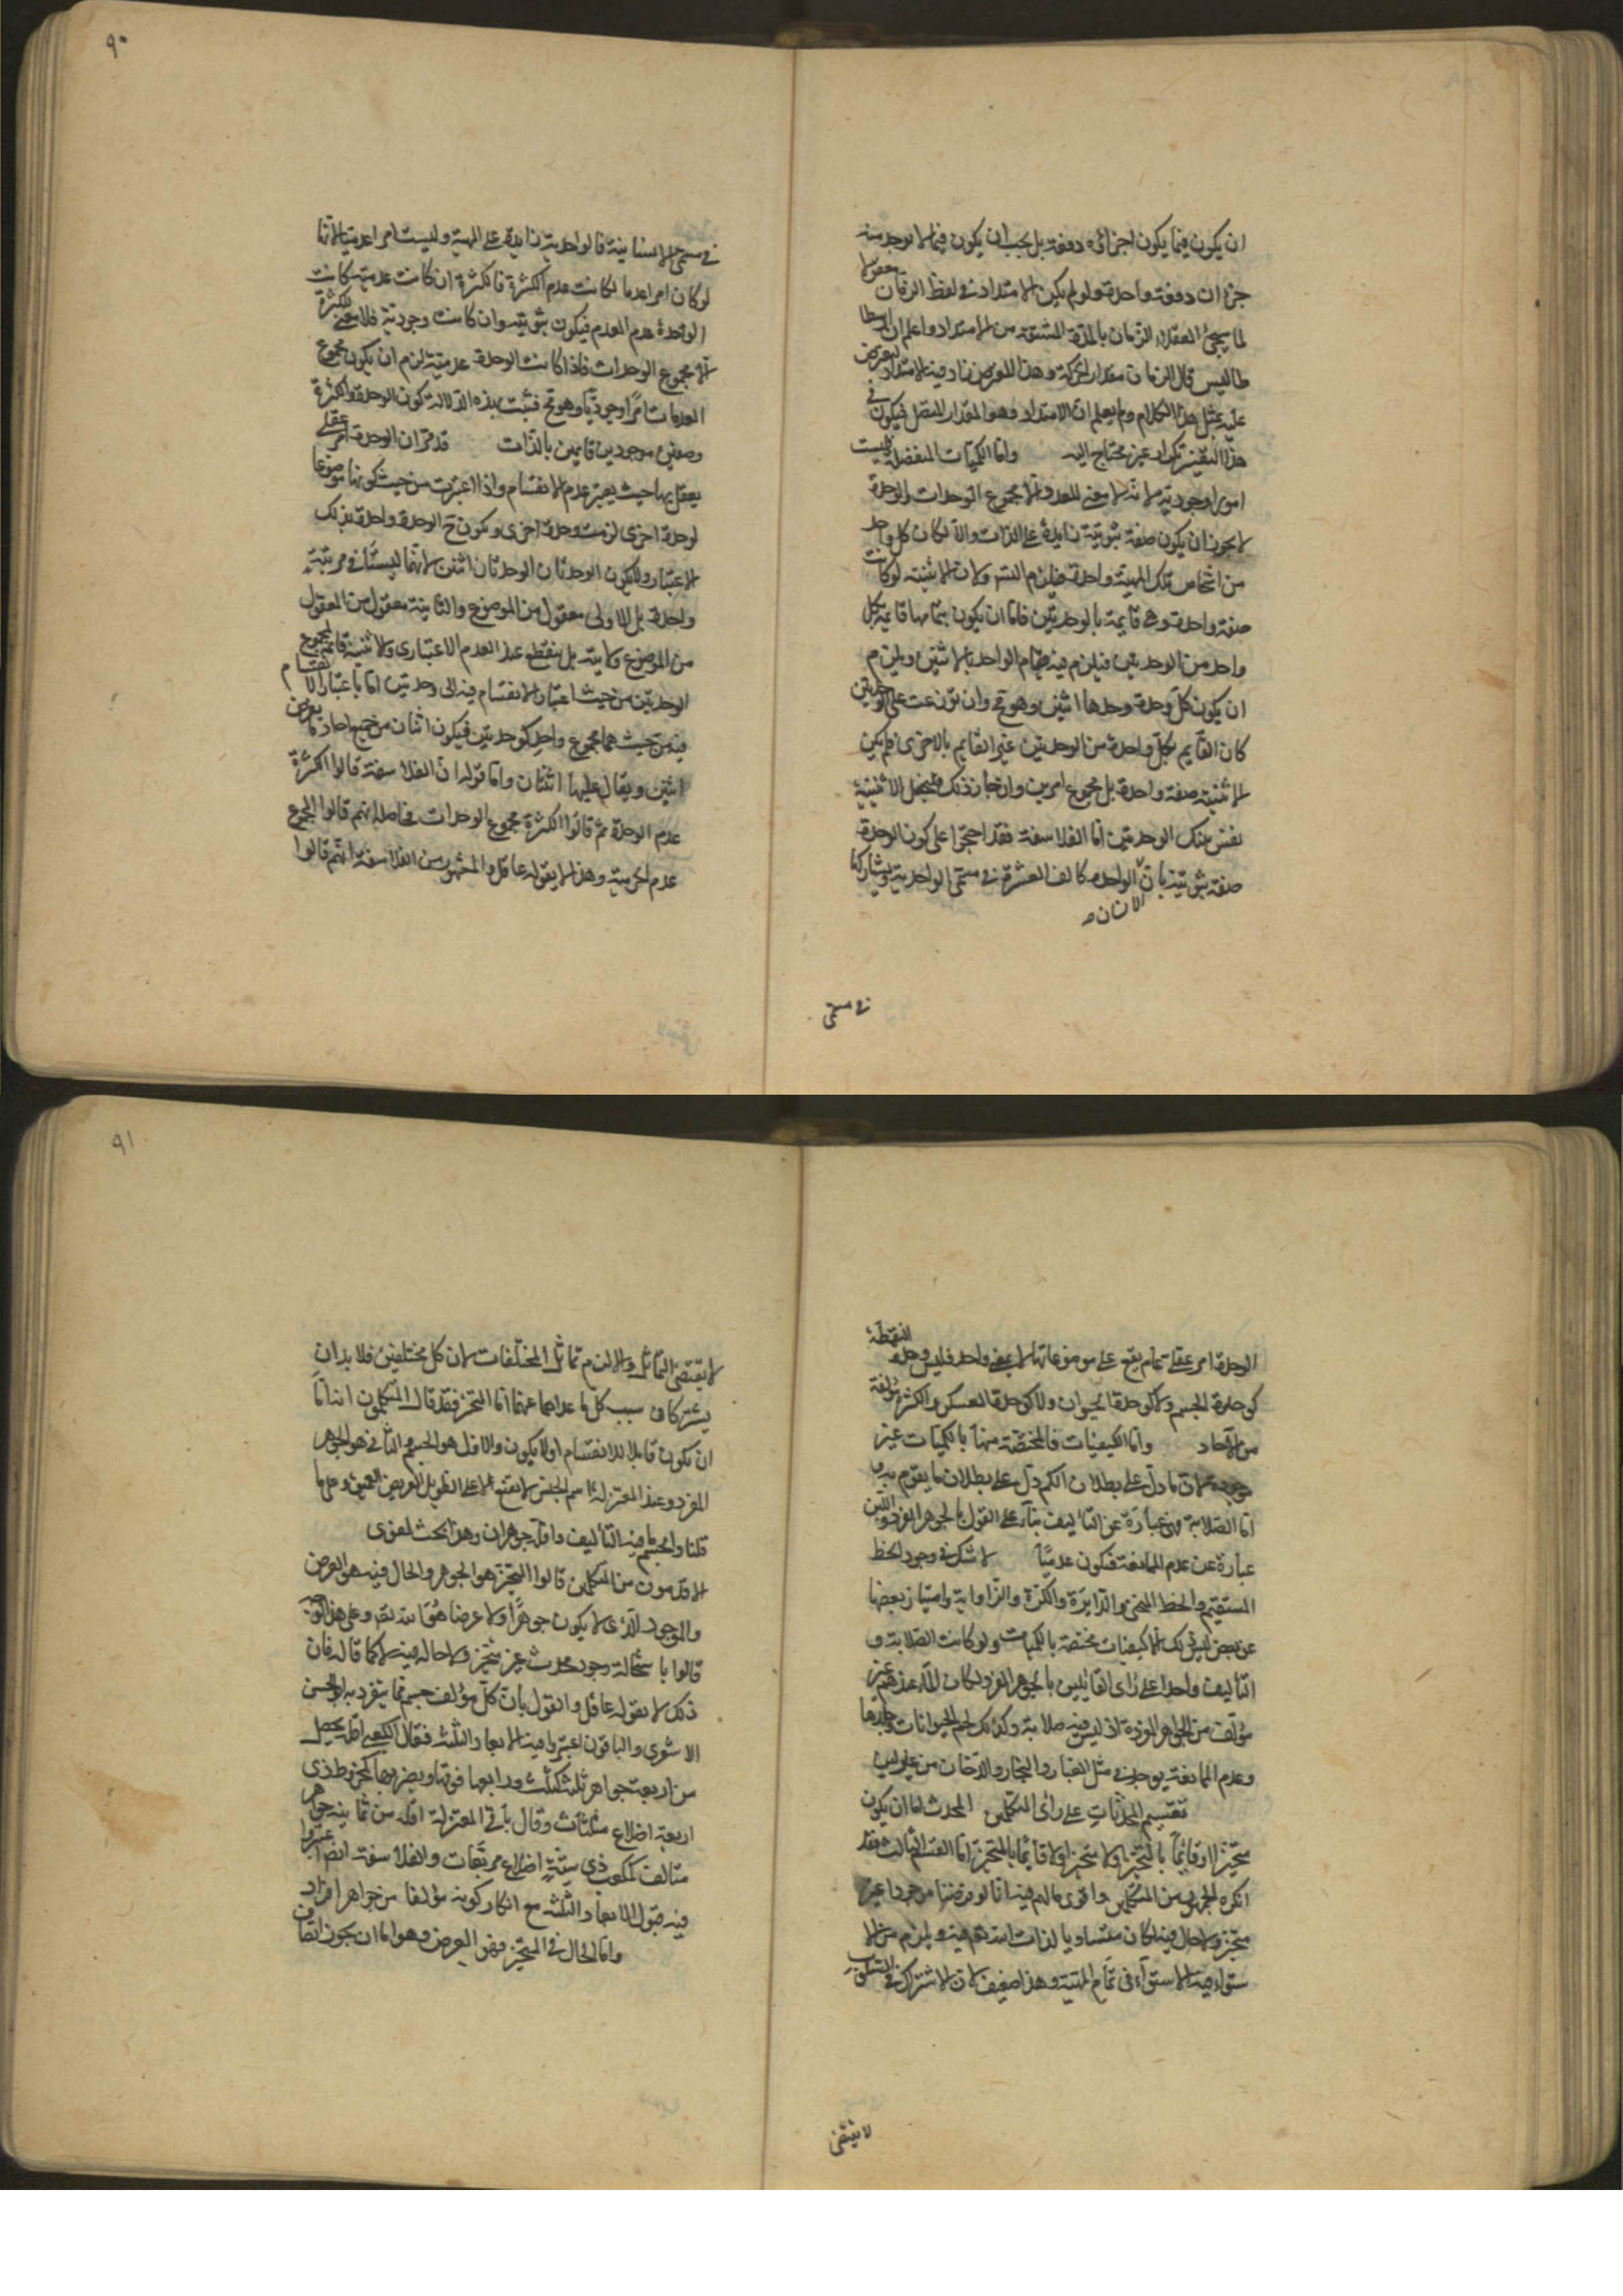 ان يكون فيما يكون اجزائه دفعة بل يجب ان يكون فيما لا يوجد منه
جزءان دفعة واحدة ولو لم يكن الامتداد فى لفظ الزمان معقولا
لما العقلاء الزمان بالمدة المشتقة من الامتداد واعلم ان ارسطا
طاليس قال الزمان مقدار الحركة وهذا المعترض زاد فيه الامتداد ليعترض
عليه بمثل هذا الكلام ولم يعلم ان الامتداد هو المقدار المتصل فيكون فى
هذا التفسير تكرار غير محتاج اليه واما الكميات المنفصلة فليست
امورا وجودية لانه لا معنى للعدد الا مجموع الوحدات والوحدة
لا يجوز ان يكون صفة ثبوتية زايدة على الذات والا لكان كل واحد
من اشخاص تلك المهية واحدة فيلزم التسلسل ولان الاثنينية لو كانت
صفة واحدة وهى قايمة بالوحدتين فاما ان يكون بتمامها قايمة بكل
واحد من الوحدتين فيلزم فيه قيام الواحد بالاثنين ويلزم
ان يكون كل وحدة وحدها اثنين وهو مح وان توزعت على الوحدتين
كان القايم بكل واحدة من الوحدتين غير القايم بالاخرى فلم يكن
الاثنينية صفة واحدة بل مجموع امرين وان جاز ذلك فليجعل الاثنينية
نفس تينك الوحدتين اما الفلاسفة فقد احتجوا على كون الوحدة
صفة ثبوتية بان الواحد كالف العشرة فى مسمى الواحدية ويشاركها
الانسان
فى مسمى
٩٠
فى مسمى الانسانية فالواحدية زايدة على المهية وليست امرا عدميا لانها
لو كان امرا عدما لكانت عدم الكثرة فالكثرة ان كانت عدمية كانت
الوحدة عدم العدم فيكون ثبوتية وان كانت وجودية فلا معنى للكثرة
الا مجموع الوحدات فاذا كانت الوحدة عدمية لزم ان يكون مجموع
العدمات امرا وجوديا وهو مح فثبت بهذه الدلالة كون الوحدة والكثرة
وصفين موجودين قايمين بالذات قد مر ان الوحدة امر عقلى
يعقل بها حيث يعتبر عدم الانقسام واذا اعتبرت من حيث كونها موضوعا
لوحدة اخرى لزمت وحدة اخرى وتكون ح الوحدة واحدة بذلك
الاعتبار ولا يكون الوحدتان الوحدتان اثنين لانهما ليستا فى مرتبة
واحدة بل الاولى معقول من الموضوع والثانية معقول من المعقول
من الموضوع ولا يتسلسل بل ينقطع عند العدم الاعتبارى والاثنينية قايمة بمجموع
الوحدتين من حيث اعتبار الانقسام فيه الى وحدتين اما باعتبار الانقسام
فيه من حيث هما مجموع واحد كوحدتين فيكون اثنان من جميع احاد ما يعرض
اثنين ويقال عليها اثنتان واما قوله ان الفلاسفة قالوا الكثرة
عدم الوحدة ثم قالوا الكثرة مجموع الوحدات فحاصله انهم قالوا المجموع
عدم اجزائه وهذا لا يقوله عاقل والمشهور من الفلاسفة انهم قالوا
الوحدة امر عقلى عام يقع على موضوعاتها لا بمعنى واحد فليس وحدة النقطة
كوحدة الجسم ولا كوحدة الحيوان ولا كوحدة العسكر والكثرة مؤلفة
من الآحاد واما الكيفيات فالمختصة منها بالكميات غير
موجودة لان ما دل على بطلان الكم دل على بطلان ما يقوم به و
اما الصلابة فهى عبارة عن التاليف بناء على القول بالجوهر الفرد واللين
عبارة عن عدم الممانعة فيكون عدميا لا شك فى وجود الخط
المستقيم والخط المنحنى والدايرة والكرة والزاوية وامتياز بعضها
عن بعض ليس ذلك الا كيفيات مختصة بالكميات ولو كانت الصلابة و
التأليف واحدا على راى القايلين بالجوهر الفرد لكان الماء عندهم غير
مؤلف من الجواهر الفردة اذ ليس فيه صلابة وكذلك لحم الحيوانات وجلدها
وعدم الممانعة يوجد فى مثل الغبار والبخار والدخان
تقسيم المحدثات على راى المتكلمين المحدث اما ان يكون
متحيزا او قائما بالمتحيز او لا متحيزا ولا قائما بالمتحيز اما القسم الثالث فقد
انكره الجمهور من المتكلمين واقوى ما لهم فيه انا لو فرضنا موجودا غير
متحيز ولا حال فيه لكان مساويا لذات الله تعالى فيه ويلزم من الا
ستواء فيه الاستواء فى تمام المهية وهذا ضعيف لان الاشتراك فى السلوب
لا يقتضى
٩١
لا يقتضى التماثل والا لزم تماثل المختلفات لان كل مختلفين فلا بد ان
يشتركا فى سلب كل ما عداهما عنهما اما المتحيز فقد قال المتكلمون انه اما
ان يكون قابلا للانقسام او لا يكون والاول هو الجسم والثانى هو الجوهر
الفرد وعند المعتزلة اسم الجنس لا يقع الا على الطويل العريض العميق وعلى ما
قلنا والجسم ما فيه التأليف واقله جوهران وهذا بحث لغوى
الاقدمون من المتكلمين قالوا المتحيز هو الجوهر والحال فيه هو العرض
والموجود الذى لا يكون جوهرا ولا عرضا هو الله تعالى وعلى هذا الوجه
قالوا باستحالة وجود محدث غير متحيز ولا حال فيه لا كما قاله فان
ذلك لا يقوله عاقل والقول بان كل مؤلف جسم مما ينفرد به ابو الحسن
الاشعرى والباقون اعتبروا فيه الابعاد الثلثة فقال الكعبى اقله يحصل
من اربعة جواهر ثلثة كمثلث ورابعها فوقها ويصير بها كمخروط ذى
اربعة اضلاع مثلثات وقال باقى المعتزلة اقله من ثمانية جواهر
متالف كمكعب ذى ستة اضلاع مربعات والفلاسفة ايضا اعتبروا
فيه قبول الابعاد الثلثة مع انكار كونه مؤلفا من جواهر افراد
واما الحال فى المتحيز فهو العرض وهو اما ان يجوز اتصاف